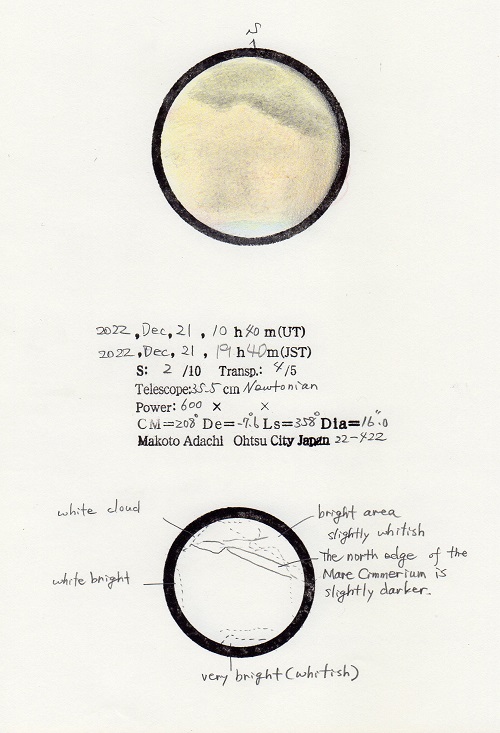 S
2022, Dec, 21, 10 h 40 m (UT)
2022, Dec, 21, 19 h 40 m (JST)
S: 2 /10 Transp.: 4/5
Telescope: 35.5 cm Newtonian
Power: 600 × ×
CM=208° De=-7.6° Ls=358° Dia=16".0
Makoto Adachi Ohtsu City Japan 22-422
white cloud
bright area
slightly whitish
The north edge of the
Mare Cimmerium is
slightly darker.
white bright
very bright (whitish)